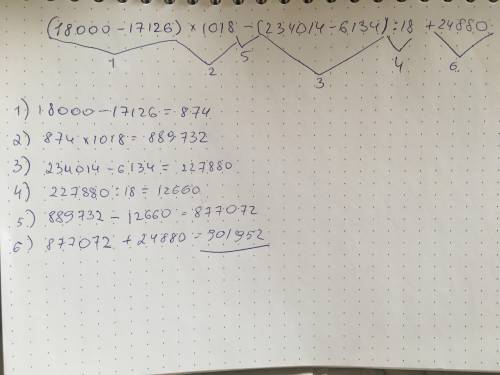 (18000-17126)×1018-(234014-6134):18+24880
1 2 5 3 4 6
1) 18000-17126=874
2) 874×1018=889732
3) 234014-6134=227880
4) 227880:18=12660
5) 889732-12660=877072
6) 877072+24880=901952